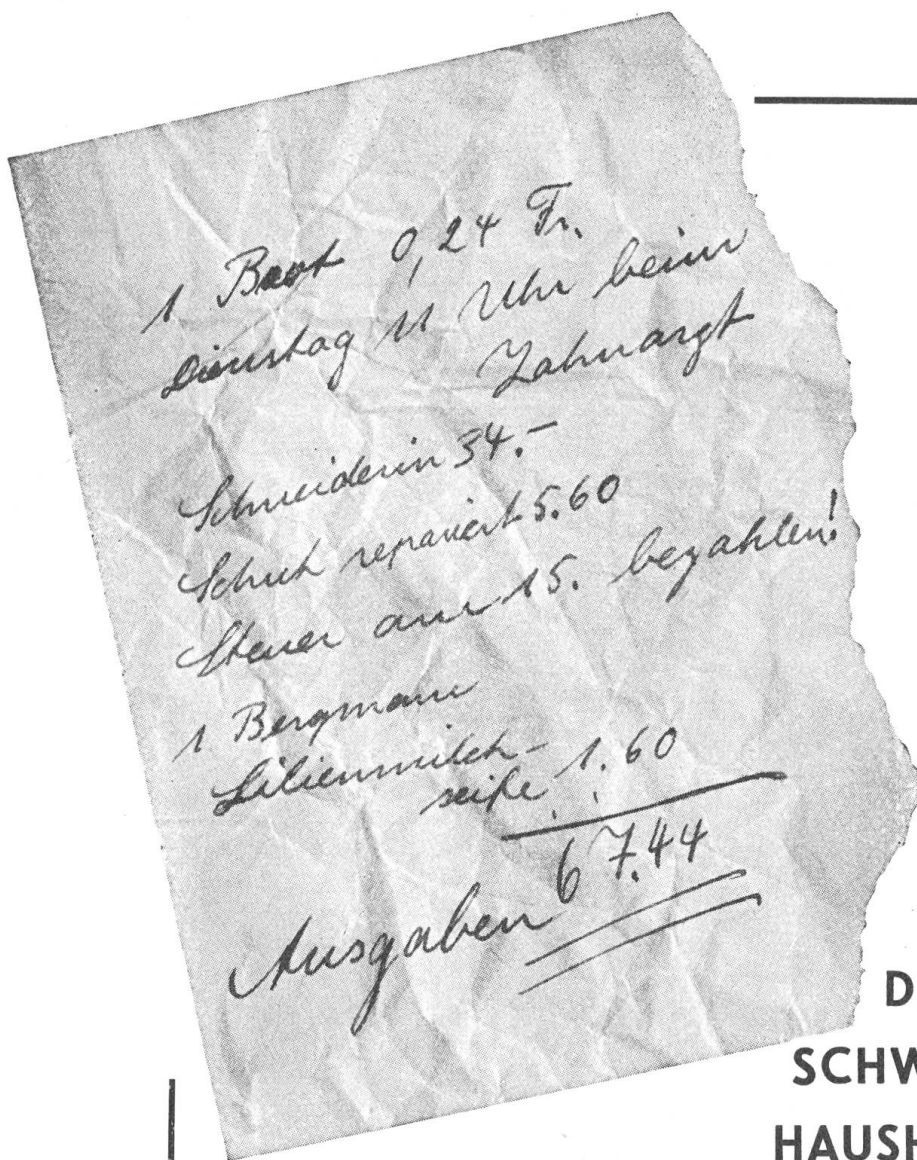 1 Brot 0,24 Fr.
Dienstag 11 Uhr beim
Zahnarzt
Schneiderin 34.-
Schuh repariert 5.60
Steuer am 15. bezahlen!
1 Bergmann
Lilienmilch-
seife 1.60
67.44
Ausgaben
D
SCHW
HAUSH